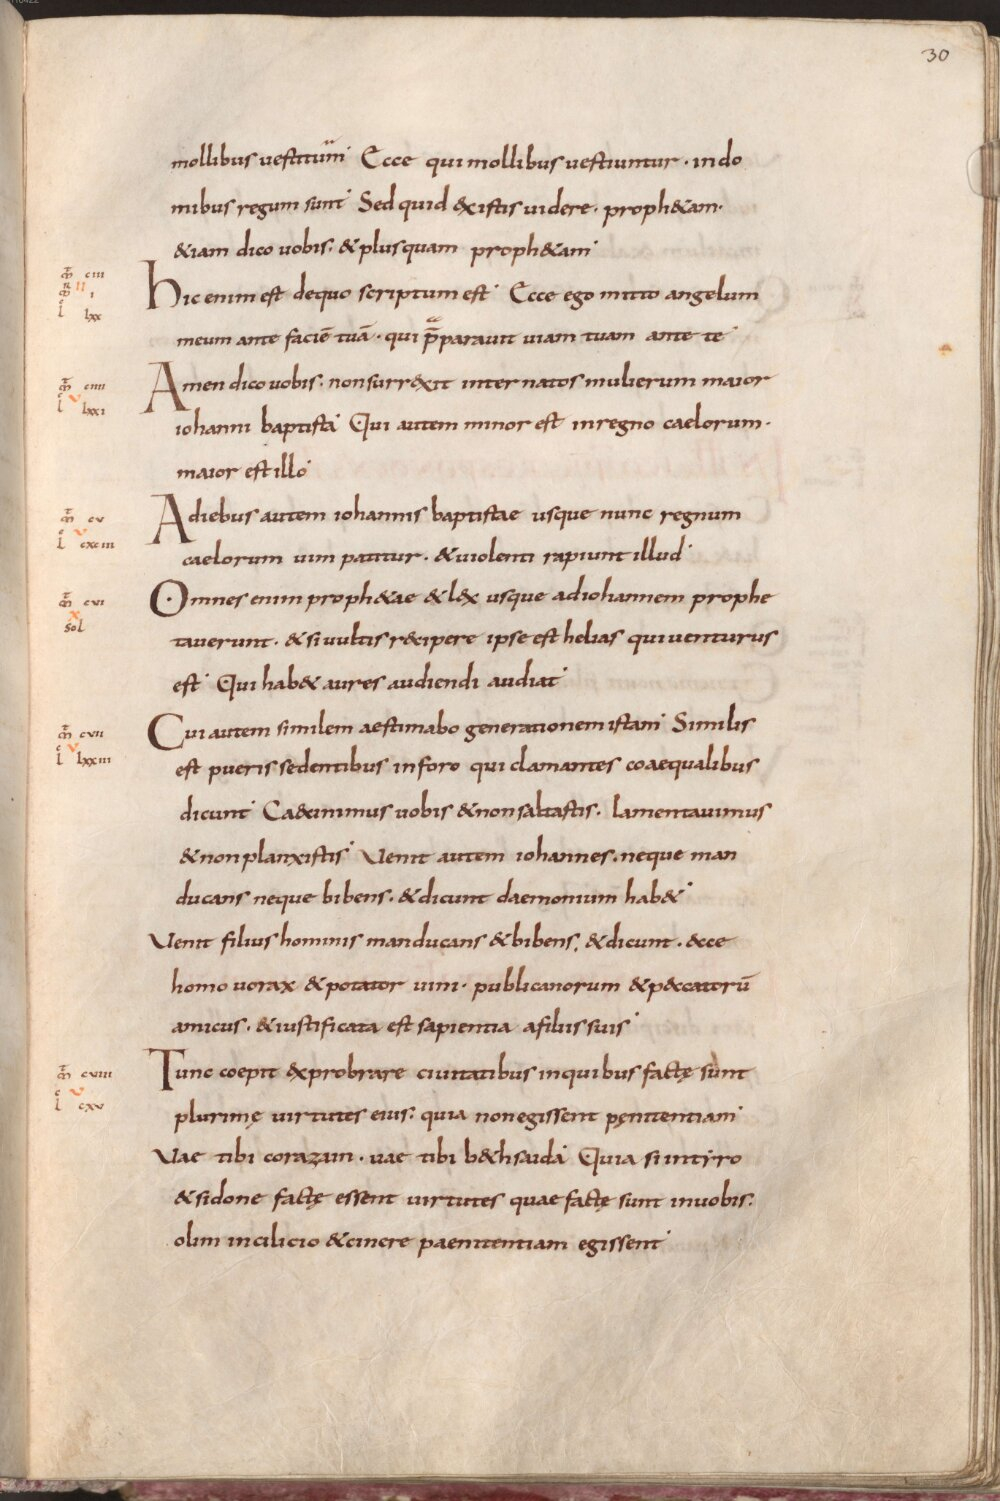 30
mollibus uestitum Ecce qui mollibus uestiuntur · in do
mibus regum sunt Sed quid existis uidere · proph&am ·
&iam dico uobis · & plus quam proph&am
m̄ ciii
m̄ ii i
l lxx
hic enim est de quo scriptum est Ecce ego mitto angelum
meum ante faciē tuā · qui p̄parauit uiam tuam ante te
m̄ ciiii
l v lxxi
Amen dico uobis · non surrexit inter natos mulierum maior
iohanni baptista Qui autem minor est in regno caelorum ·
maior est illo
m̄ cv
l v cxciii
A diebus autem iohannis baptistae usque nunc regnum
caelorum uim patitur · & uiolenti rapiunt illud
m̄ cvi
x sol
Omnes enim proph&ae & lex usque ad iohannem prophe
tauerunt · & si uultis r&cipere ipse est helias qui uenturus
est Qui hab& aures audiendi audiat
m̄ cvii
l v lxxiii
Cui autem similem aestimabo generationem istam Similis
est pueris sedentibus in foro qui clamantes coaequalibus
dicunt Cecinimus uobis & non saltastis · lamentauimus
& non planxistis Uenit autem iohannes · neque man
ducans neque bibens · & dicunt daemonium hab&
Uenit filius hominis manducans & bibens · & dicunt · &cce
homo uorax & potator uini · publicanorum & p&ccatorū
amicus · & iustificata est sapientia a filiis suis
m̄ cviii
l v cxv
Tunc coepit exprobrare ciuitatibus in quibus factę sunt
plurimę uirtutes eius · quia non egissent pęnitentiam
Uae tibi corazain · uae tibi b&hsaida Quia si in tyro
& sidone factę essent uirtutes quae factę sunt in uobis ·
olim in cilicio & cinere paenitentiam egissent